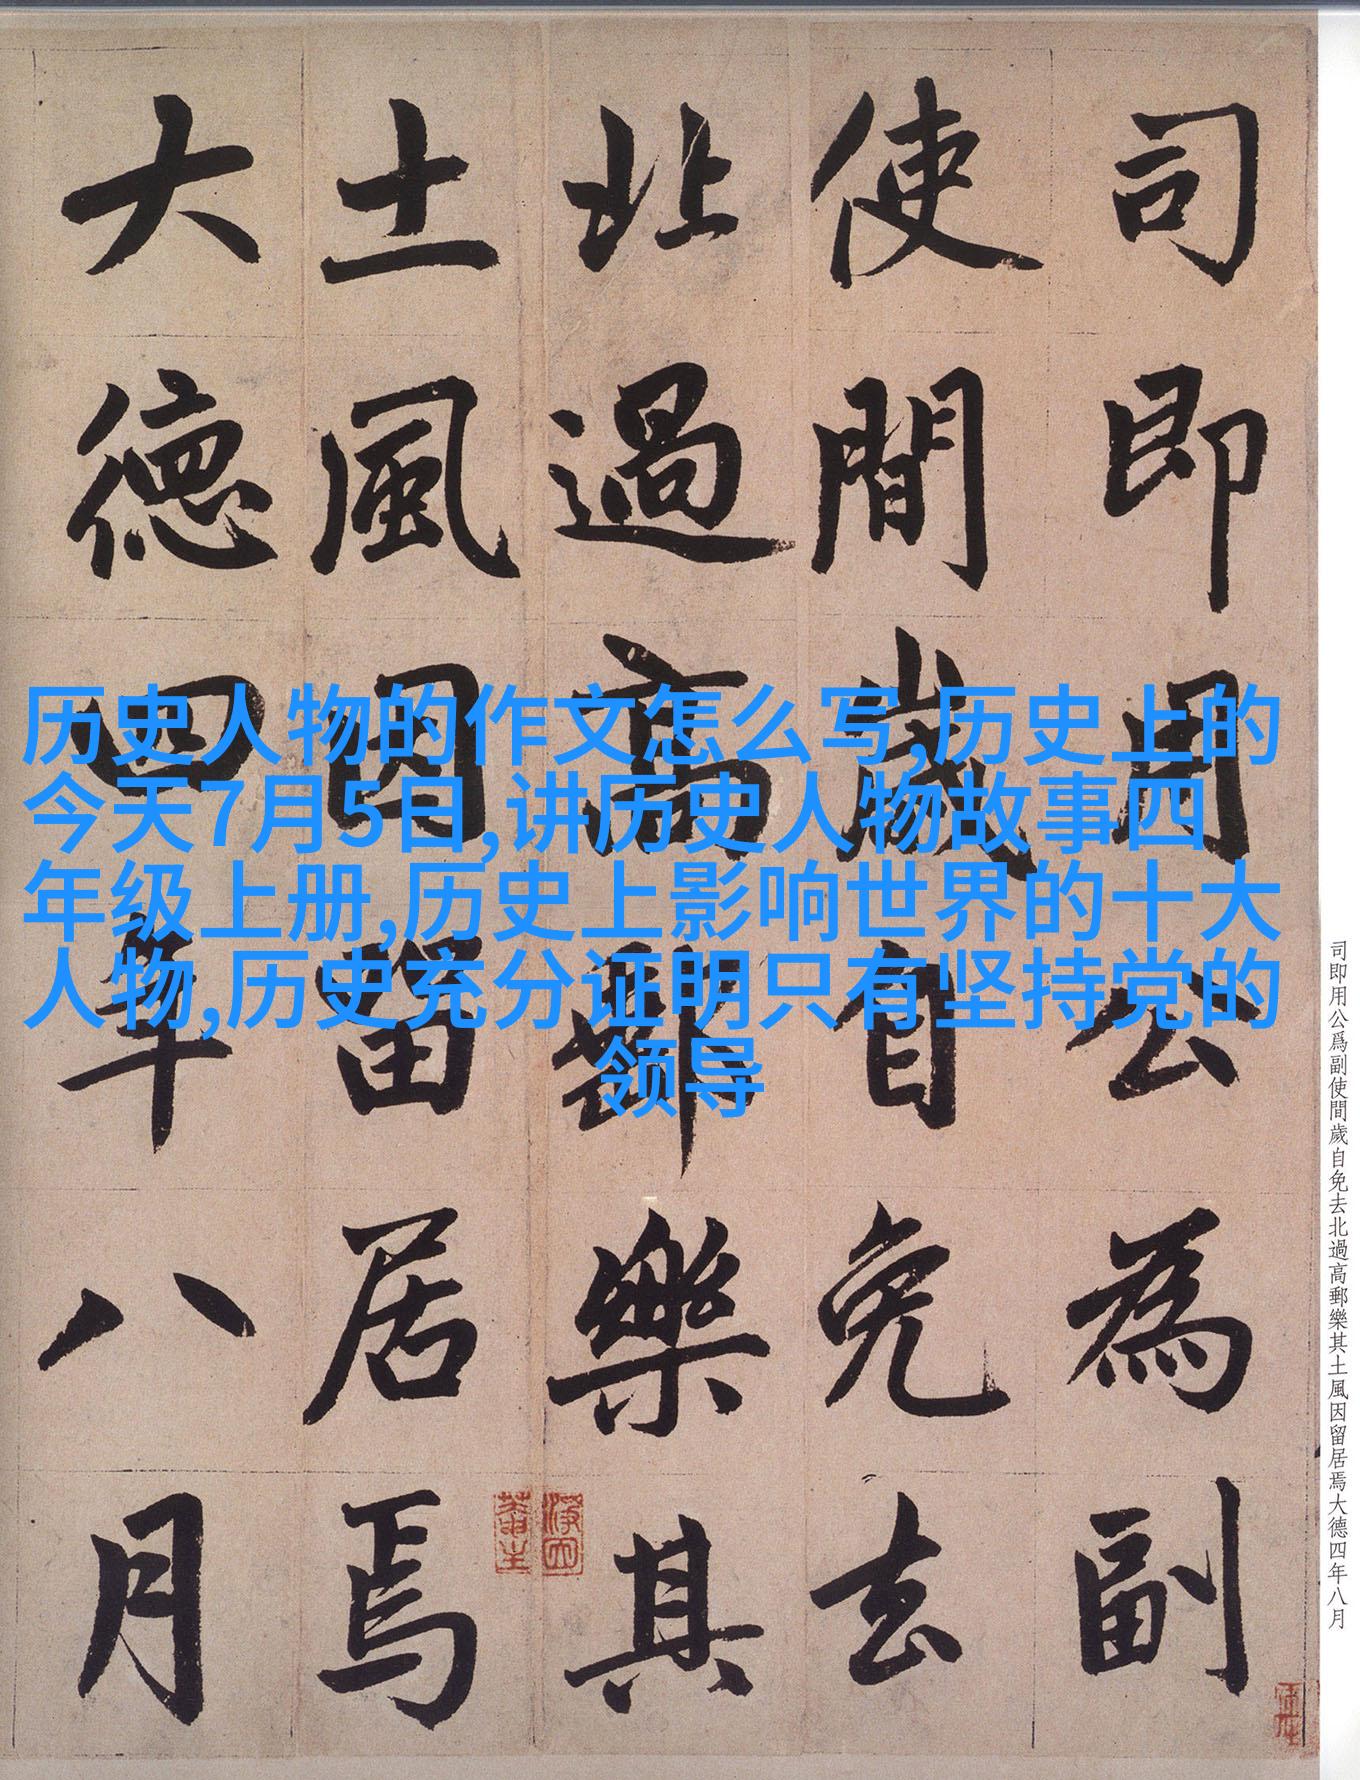 司即用公為副
使間歲自免去
北過高郵樂其
土風因留居焉
大德四年八月
历史人物的作文怎么写,历史上的
今天7月5日,讲历史人物故事四
年级上册,历史上影响世界的十大
人物,历史充分证明只有坚持党的
领导
司即用公爲副使間歲自免去北過高郵樂其土風因留居焉大德四年八月